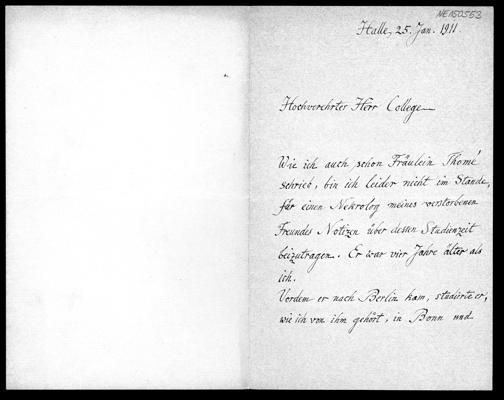 NE150553
Halle, 25. Jan. 1911.
Hochverehrter Herr College
Wie ich auch schon Fräulein Thomé
schrieb, bin ich leider nicht im Stande,
für einen Nekrolog meines verstorbenen
Freundes Notizen über dessen Studienzeit
beizutragen. Er war vier Jahre älter als
ich.
Vordem er nach Berlin kam, studierte er,
wie ich von ihm gehört, in Bonn und